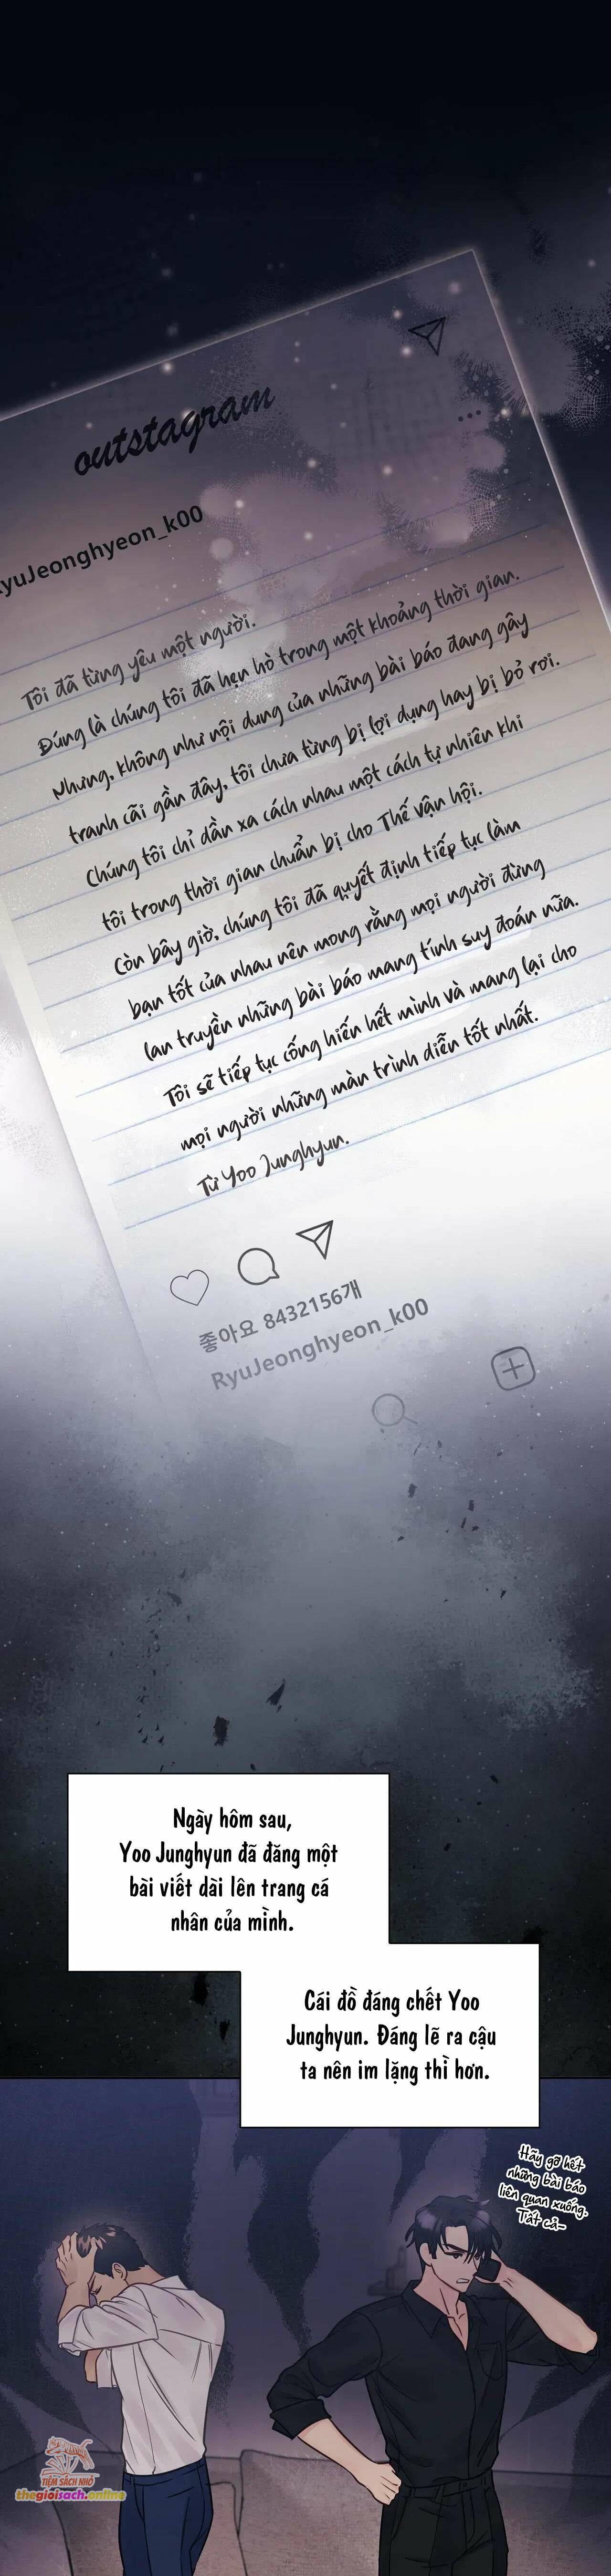 outstagram
RyuJeonghyeon_k00
Tôi đã từng yêu một người.
Đúng là chúng tôi đã hẹn hò trong một khoảng thời gian.
Nhưng, không như nội dung của những bài báo đang gây
tranh cãi gần đây, tôi chưa từng bị lợi dụng hay bị bỏ rơi.
Chúng tôi chỉ dần xa cách nhau một cách tự nhiên khi
tôi trong thời gian chuẩn bị cho Thế vận hội.
Còn bây giờ, chúng tôi đã quyết định tiếp tục làm
bạn tốt của nhau nên mong rằng mọi người đừng
lan truyền những bài báo mang tính suy đoán nữa.
Tôi sẽ tiếp tục cống hiến hết mình và mang lại cho
mọi người những màn trình diễn tốt nhất.
Từ Yoo Junghyun.
좋아요 8432156개
RyuJeonghyeon_k00
Ngày hôm sau,
Yoo Junghyun đã đăng một
bài viết dài lên trang cá
nhân của mình.
Cái đồ đáng chết Yoo
Junghyun. Đáng lẽ ra cậu
ta nên im lặng thì hơn.
Hãy gỡ hết
những bài báo
liên quan xuống.
Tất cả~
TIỆM SÁCH NHỎ
thegioisach.online